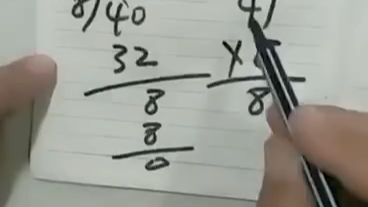 8)40
32
8
8
0
4)
X
8